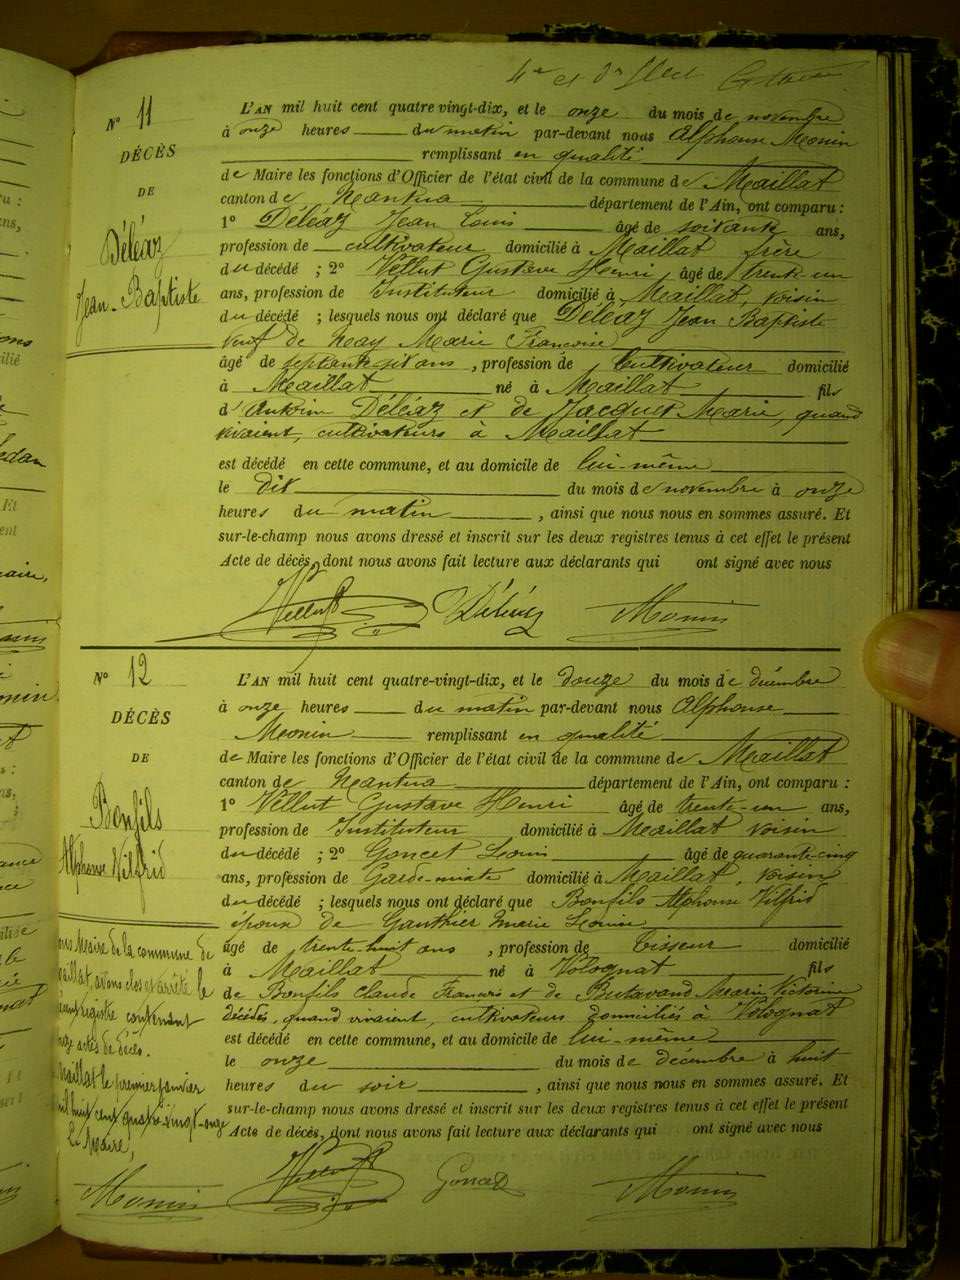 4e et dr
N° 11
DÉCÈS
DE
Déléaz
Jean-Baptiste
L'AN mil huit cent quatre vingt-dix, et le onze du mois de novembre
à onze heures du matin par-devant nous Alphonse Monin
remplissant en qualité
de Maire les fonctions d'Officier de l'état civil de la commune de Maillat
canton de Nantua département de l'Ain, ont comparu :
1° Déléaz Jean Louis âgé de soixante ans,
profession de cultivateur domicilié à Maillat frère
du décédé ; 2° Vellut Gustave Henri âgé de trente-un
ans, profession de Instituteur domicilié à Maillat, voisin
du décédé ; lesquels nous ont déclaré que Déléaz Jean Baptiste
veuf de Marie Françoise
âgé de ans, profession de Cultivateur domicilié
à Maillat né à Maillat fils
d'Antoine Déléaz et de Jacquet Marie, quand
vivaient, cultivateurs à Maillat
est décédé en cette commune, et au domicile de lui-même
le dix du mois de novembre à onze
heures du matin, ainsi que nous nous en sommes assuré. Et
sur-le-champ nous avons dressé et inscrit sur les deux registres tenus à cet effet le présent
Acte de décès, dont nous avons fait lecture aux déclarants qui ont signé avec nous
Vellut Déléaz Monin
N° 12
DÉCÈS
DE
Bonfils
Alphonse Vilfrid
L'AN mil huit cent quatre-vingt-dix, et le douze du mois de décembre
à onze heures du matin par-devant nous Alphonse
Monin remplissant en qualité
de Maire les fonctions d'Officier de l'état civil de la commune de Maillat
canton de Nantua département de l'Ain, ont comparu :
1° Vellut Gustave Henri âgé de trente-un ans,
profession de Instituteur domicilié à Maillat voisin
du décédé ; 2° Goncet Louis âgé de quarante-cinq
ans, profession de Garde-mixte domicilié à Maillat, voisin
du décédé ; lesquels nous ont déclaré que Bonfils Alphonse Vilfrid
époux de Gauthier Marie Louise
âgé de trente-huit ans, profession de Tisseur domicilié
à Maillat né à Volognat fils
de Bonfils Claude François et de Butavand Marie Victorine
décédés, quand vivaient, cultivateurs domiciliés à Volognat
est décédé en cette commune, et au domicile de lui-même
le onze du mois de décembre à huit
heures du soir, ainsi que nous nous en sommes assuré. Et
sur-le-champ nous avons dressé et inscrit sur les deux registres tenus à cet effet le présent
Acte de décès, dont nous avons fait lecture aux déclarants qui ont signé avec nous
Vellut Goncet Monin
Maire de la commune de
Maillat, avons clos et arrêté le
registre contenant
actes de décès.
Maillat le premier janvier
mil huit cent quatre-vingt-onze
Le Maire,
Monin